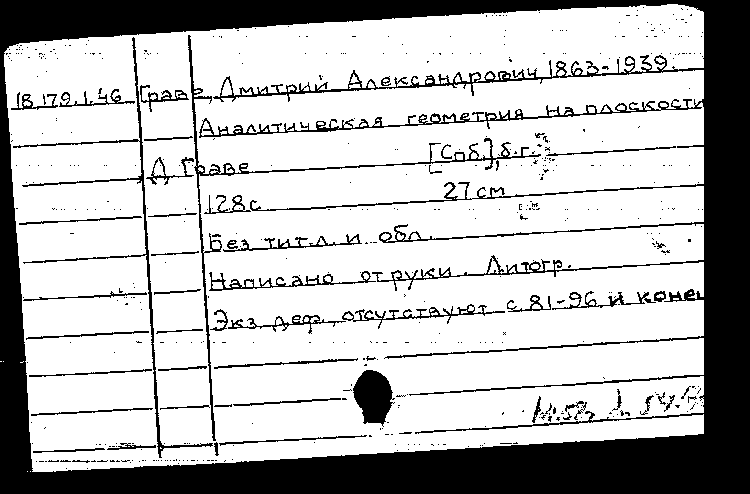 18.179.1.46 Граве, Дмитрий Александрович, 1863-1939.
Аналитическая геометрия на плоскости
Д Граве [Спб.], б.г.
128с 27 см
Без тит.л. и обл.
Написано от руки. Литогр.
Экз деф., отсутатвуют с 81-96 и конец